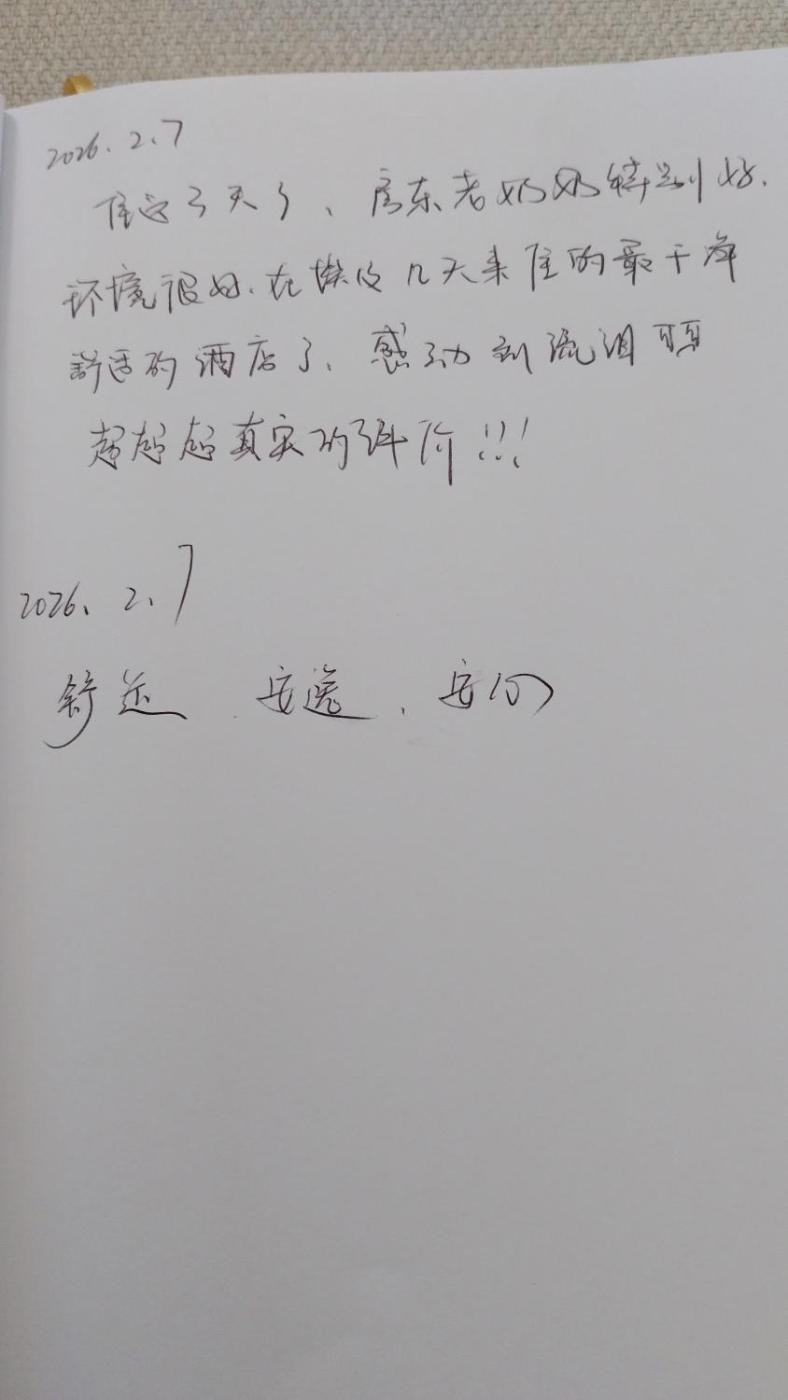 2026.2.7
住这3天了、房东老奶奶特别好.
环境很好.在埃及几天来住的最干净
舒适的酒店了、感动到流泪
超超超真实的评价!!!
2026、2、7
舒适 安逸、安心